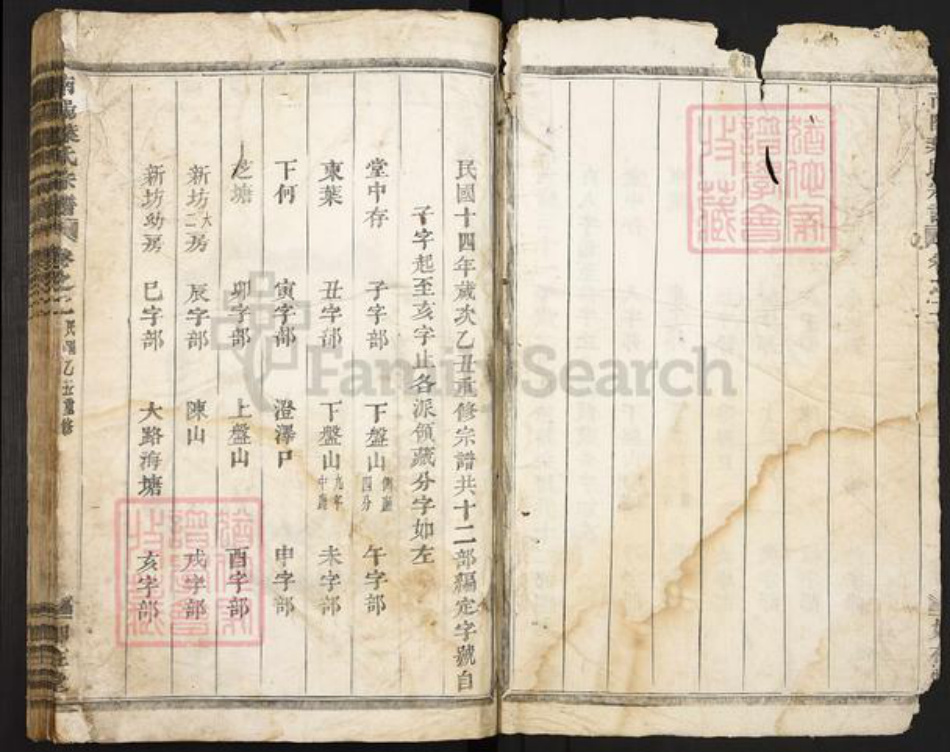 民國十四年歲次乙丑重修宗譜共十二部編定字號自
子字起至亥字止各派領藏分字如左
堂中存 子字部 下盤山 四分 午字部
東葉 丑字部 下盤山 九年 中 未字部
下何 寅字部 澄澤戸 申字部
芝塘 卯字部 上盤山 酉字部
新坊 大二 房 辰字部 陳山 戌字部
新坊幼房 巳字部 大路海塘 亥字部
南陽葉氏宗譜 卷之二 民國乙丑重修
FamilySearch